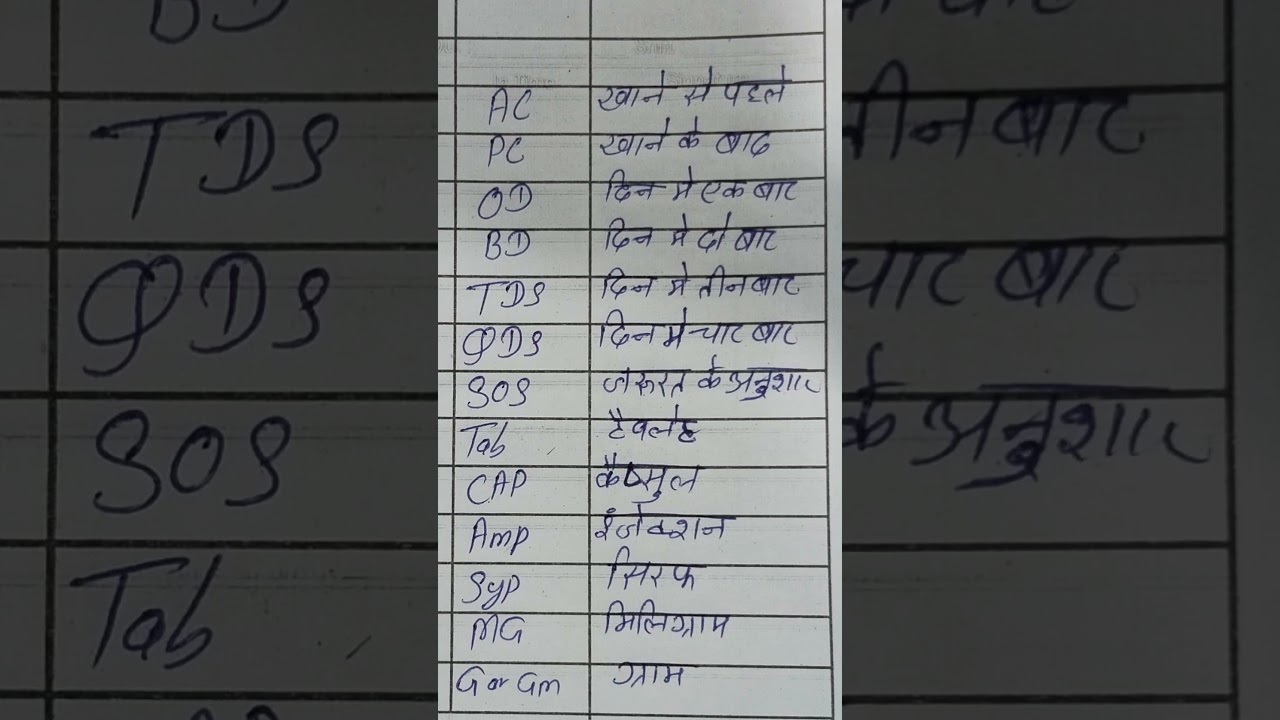 AC खाने से पहले
PC खाने के बाद
OD दिन मे एक बार
BD दिन मे दो बार
TDS दिन मे तीन बार
QDS दिन मे चार बार
SOS जरुरत के अनुशार
Tab टैवलेट
CAP कैप्सुल
Amp इंजेक्शन
Syp सिरफ
MG मिलिग्राम
G or Gm ग्राम